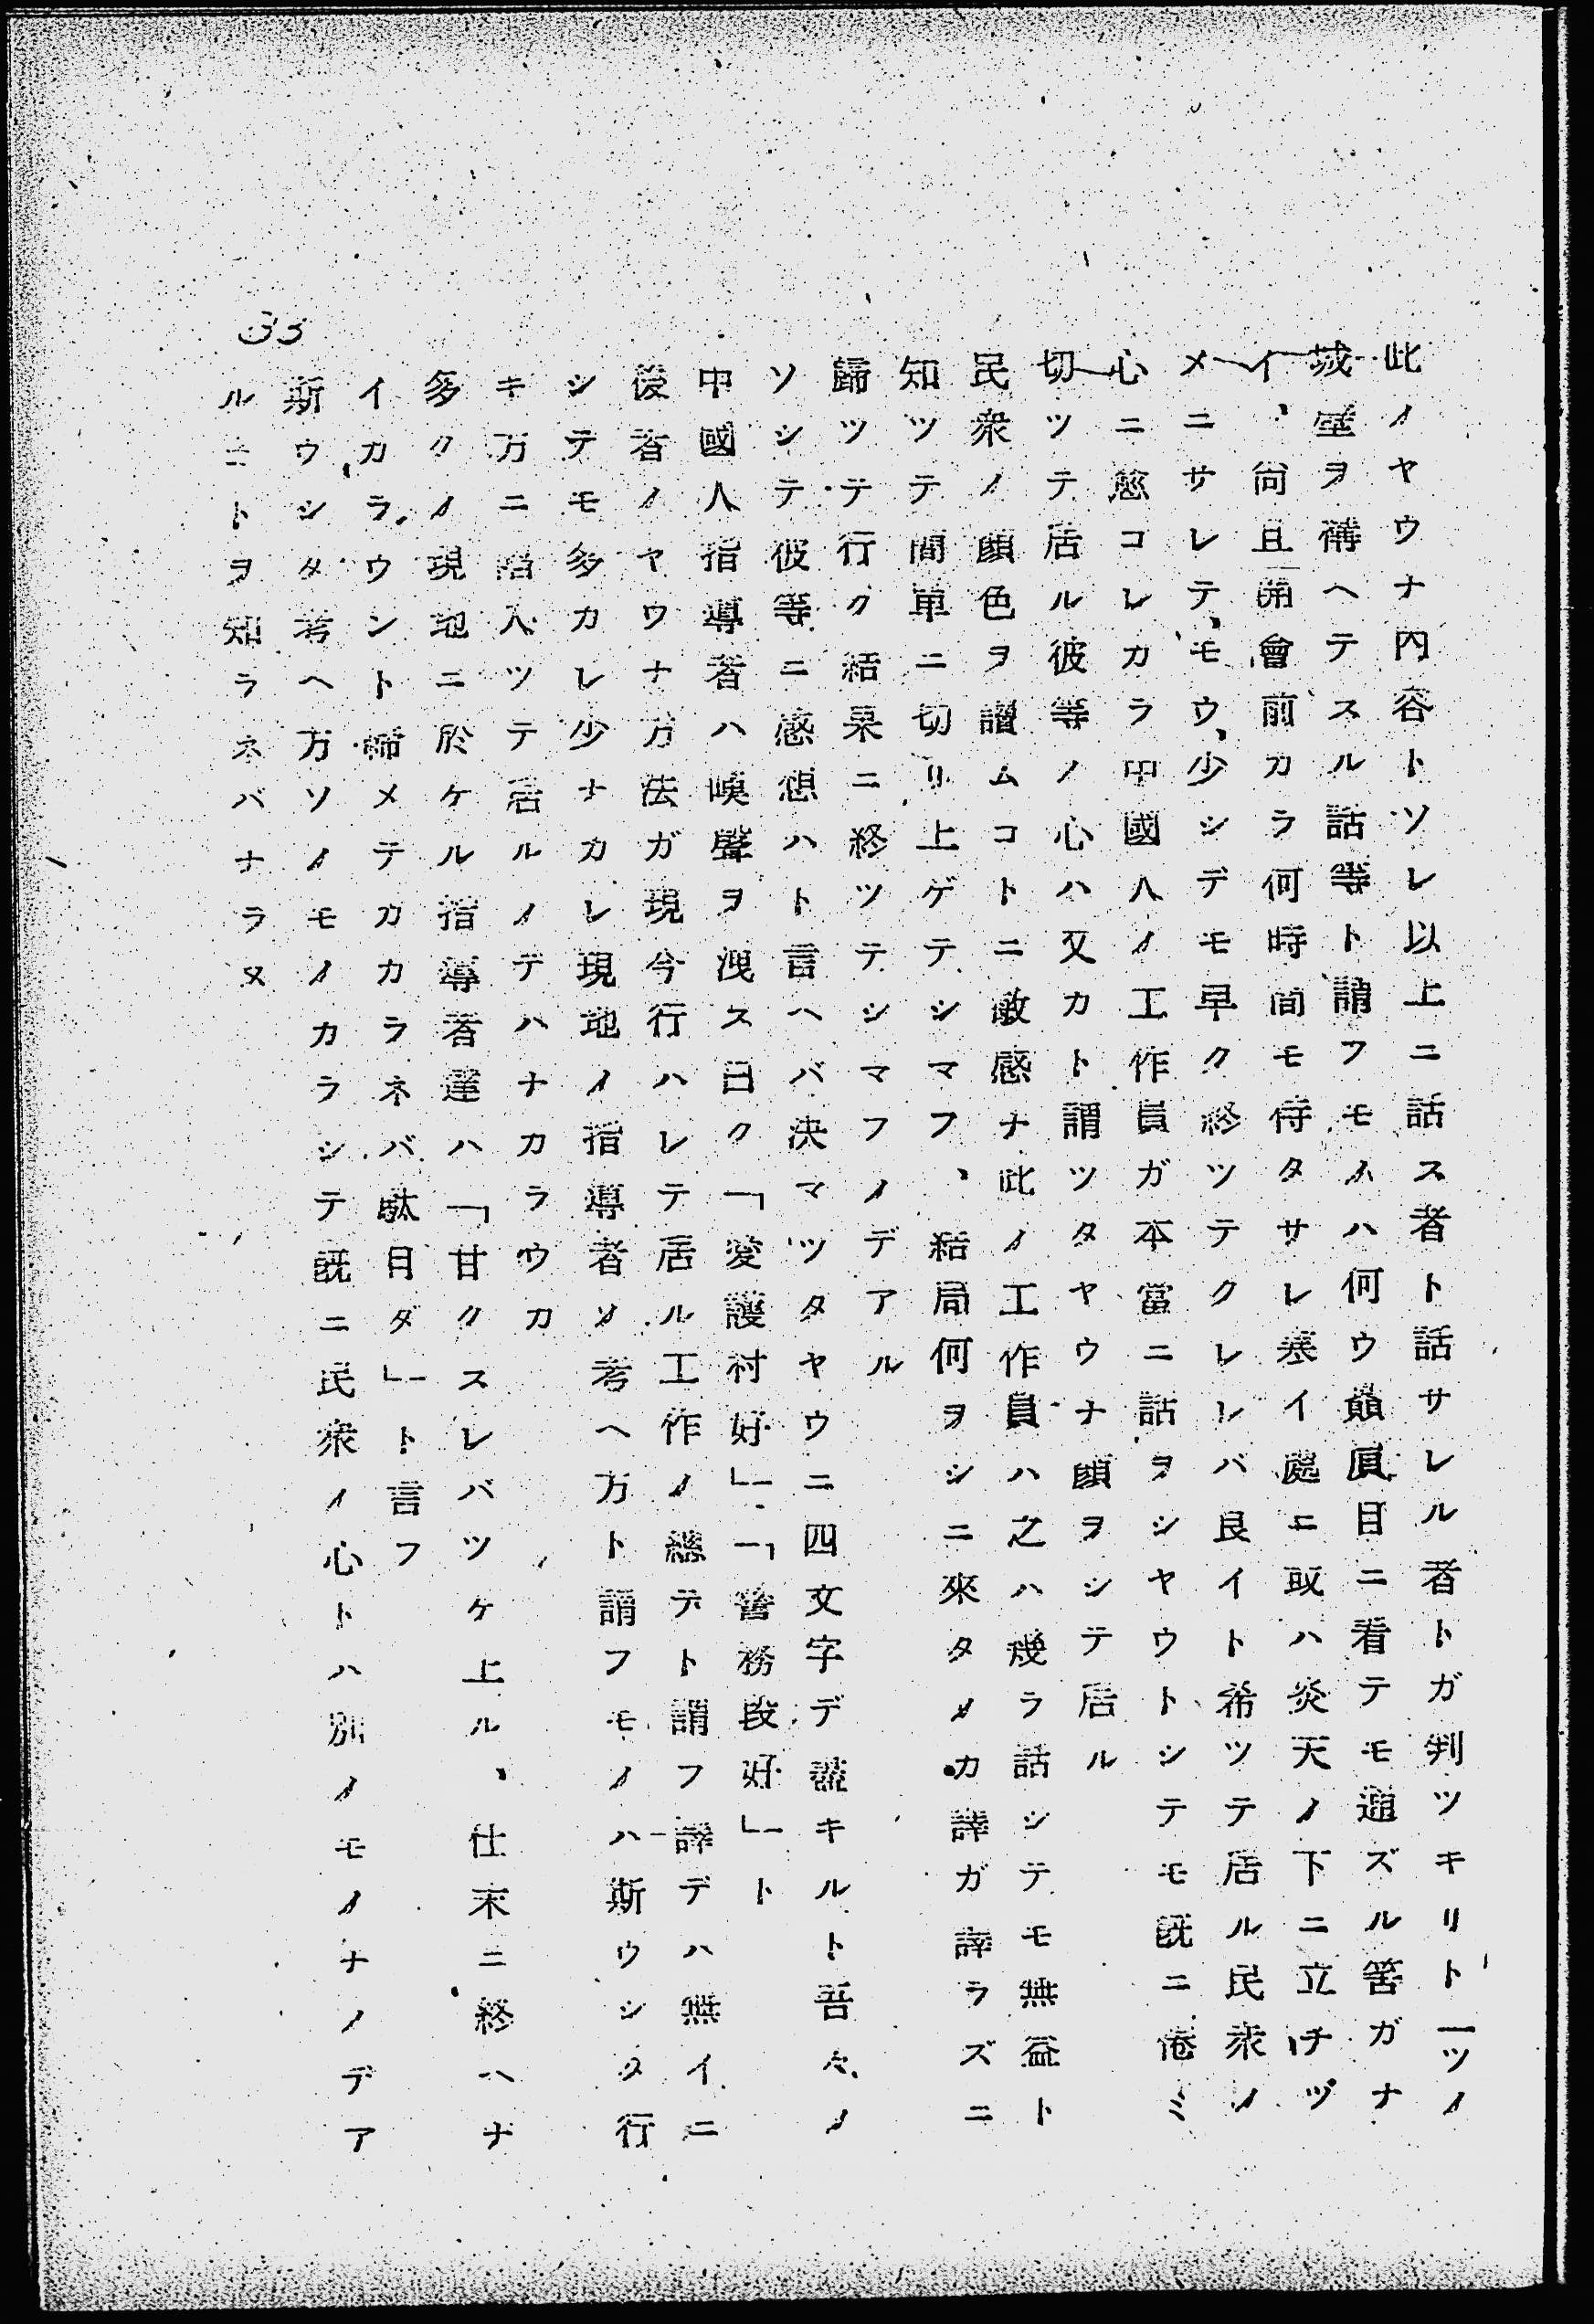 此ノヤウナ内容トソレ以上ニ話ス者ト話サレル者トガ判ツキリト一ツノ
城壁ヲ構ヘテスル話等ト謂フモノハ何ウ贔屓目ニ看テモ通ズル筈ガナ
イ、尚且開會前カラ何時間モ待タサレ塞イ處ニ或ハ炎天ノ下ニ立チヅ
メニサレテモウ少シデモ早ク終ツテクレレバ良イト希ツテ居ル民衆ノ
心ニ慾コレカラ中國人ノ工作員ガ本當ニ話ヲシヤウトシテモ既ニ倦ミ
切ツテ居ル彼等ノ心ハ又カト謂ツタヤウナ顔ヲシテ居ル
民衆ノ顔色ヲ讀ムコトニ敏感ナ此ノ工作員ハ之ハ幾ラ話シテモ無益ト
知ツテ簡單ニ切リ上ゲテシマフ、結局何ヲシニ來タメカ譯ガ譯ラズニ
歸ツテ行ク結果ニ終ツテシマフノデアル
ソシテ彼等ニ感想ハト言ヘバ決マツタヤウニ四文字デ謊キルト吾々ノ
中國人指導者ハ嘆聲ヲ洩ス曰ク「愛護村好」「警務段好」ト
後者ノヤウナ方法ガ現今行ハレテ居ル工作ノ總テト謂フ譯デハ無イニ
シテモ多カレ少ナカレ現地ノ指導者ノ考ヘ方ト謂フモノハ斯ウシタ行
キ方ニ陷入ツテ居ルノデハナカラウカ
多クノ現地ニ於ケル指導者達ハ「甘クスレバツケ上ル、仕末ニ終ヘナ
イカラ、ウント締メテカカラネバ駄目ダ」ト言フ
斯ウシタ考ヘ方ソノモノカラシテ既ニ民衆ノ心トハ別ノモノナノデア
ルコトヲ知ラネバナラヌ
33